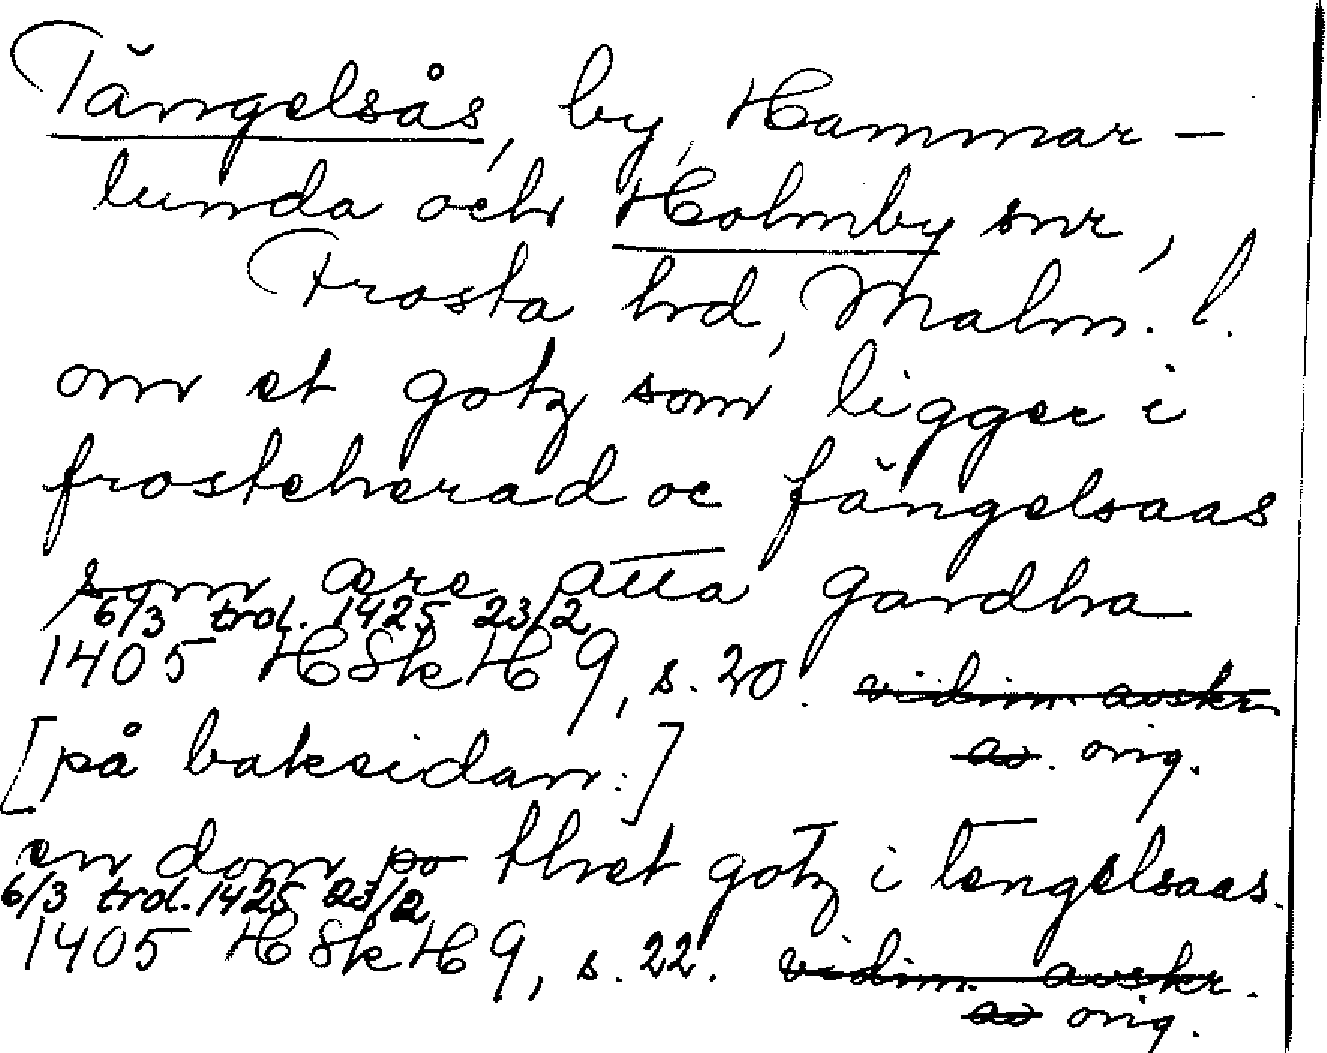 Tängelsås, by, Hammar-
lunda och Holmby snr,
Frosta hd, Malm. l.
om et gotz som ligger i
frosteherad oc fängelsaas
som ære atta gardha
6/3 trol. 1425 23/2
1405 HSkH 9, s. 20. vidim. avskr.
av. orig.
[på baksidan:]
en dom po thet gotz i tengelsaas.
6/3 trol. 1425 23/2
1405 HSkH 9, s. 22. vidim. avskr.
av orig.